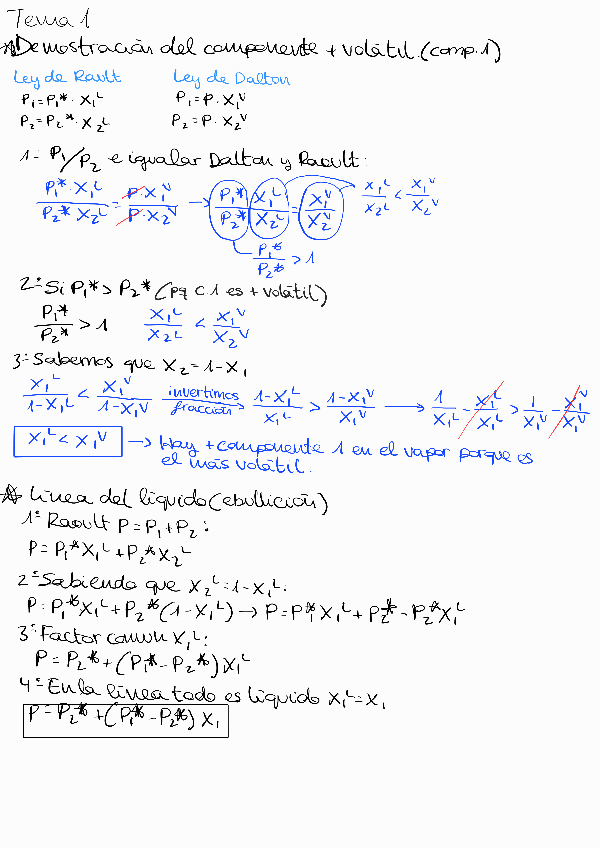 Tema 1
* Demostración del componente + volátil. (comp. 1)
Ley de Raoult Ley de Dalton
P₁=P₁*·X₁ᴸ P₁=P·X₁ⱽ
P₂=P₂*·X₂ᴸ P₂=P·X₂ⱽ
1- P₁/P₂ e igualar Dalton y Raoult.
P₁* X₁ᴸ / P₂* X₂ᴸ = P X₁ⱽ / P X₂ⱽ → P₁*/P₂* X₁ᴸ/X₂ᴸ = X₁ⱽ/X₂ⱽ X₁ᴸ/X₂ᴸ < X₁ⱽ/X₂ⱽ
P₁*/P₂* > 1
2º Si P₁* > P₂* (pq c.1 es + volátil)
P₁*/P₂* > 1 X₁ᴸ/X₂ᴸ < X₁ⱽ/X₂ⱽ
3º Sabemos que X₂ = 1-X₁
X₁ᴸ/1-X₁ᴸ < X₁ⱽ/1-X₁ⱽ invertimos fracción → 1-X₁ᴸ/X₁ᴸ > 1-X₁ⱽ/X₁ⱽ → 1/X₁ᴸ - X₁ᴸ/X₁ᴸ > 1/X₁ⱽ - X₁ⱽ/X₁ⱽ
X₁ᴸ < X₁ⱽ → Hay + componente 1 en el vapor porque es
el más volátil.
* Línea del líquido (ebullición)
1º Raoult P = P₁ + P₂ :
P = P₁* X₁ᴸ + P₂* X₂ᴸ
2º Sabiendo que X₂ᴸ = 1-X₁ᴸ:
P = P₁* X₁ᴸ + P₂* (1-X₁ᴸ) → P = P₁* X₁ᴸ + P₂* - P₂* X₁ᴸ
3º Factor común X₁ᴸ:
P = P₂* + (P₁* - P₂*) X₁ᴸ
4º En la línea todo es líquido X₁ᴸ = X₁
P = P₂* + (P₁* - P₂*) X₁